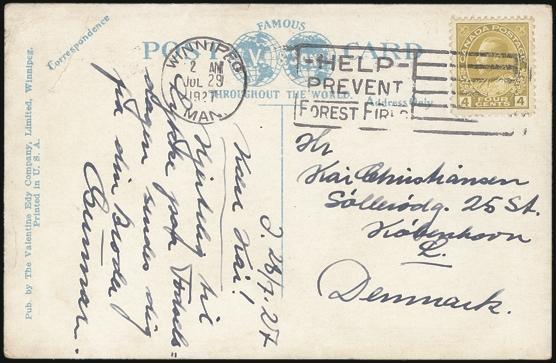 Correspondence
FAMOUS
POST CARD
THROUGHOUT THE WORLD.
Address Only
WINNIPEG
2 AM
JUL 29
1927
MAN.
HELP
PREVENT
FOREST FIRES
CANADA POSTAGE
4 FOUR CENTS 4
D. 28/7. 27
Kære Kai!
Hjertelig til
Lykke paa Fødsels=
dagen sendes dig
fra din Broder
Gunnar.
Hr
Kai Christiansen
Søllerødg. 25 St.
København
L.
Denmark.
Pub. by The Valentine Edy Company, Limited, Winnipeg.
Printed in U. S. A.